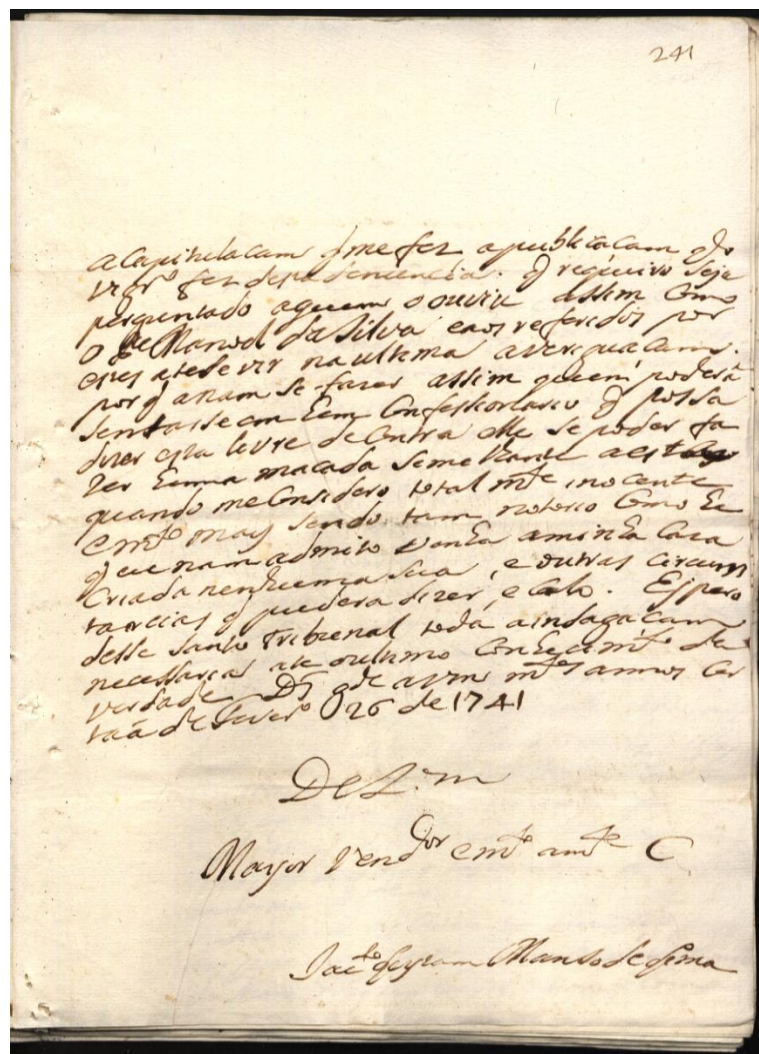 241
a Capitulacam q me fez a publicacam q do
vigr.º fez depa denuncia. q requeiro seja
perguntado a quem o ouviu assim Como
o Pe Manoel da Silva e aos referidos por
estes a tese vir na ultima averiguacam.
por q a nam se fazer assim quem poderá
sentarse em hem Confessionario q possa
dizer esta livre de Contra elle se poder fa
zer huma macada semelhante a esta
quando me Considero total mte inocente
e mto mais sendo tam notorio Como he
q eu nam admito venha a minha Caza
Criada nenhuma sua, e outras circuns
tancias q pudera dizer, e calo. Espero
desse Santo Tribunal toda a indagacam
necessaria ate o ultimo Conhecimto da
verdade Ds gde a vm mtos annos Cer
taã de Fever.º 26 de 1741
De V. m
Mayor Vendor e mto amte C
Jacto Leytam Manso de Lima